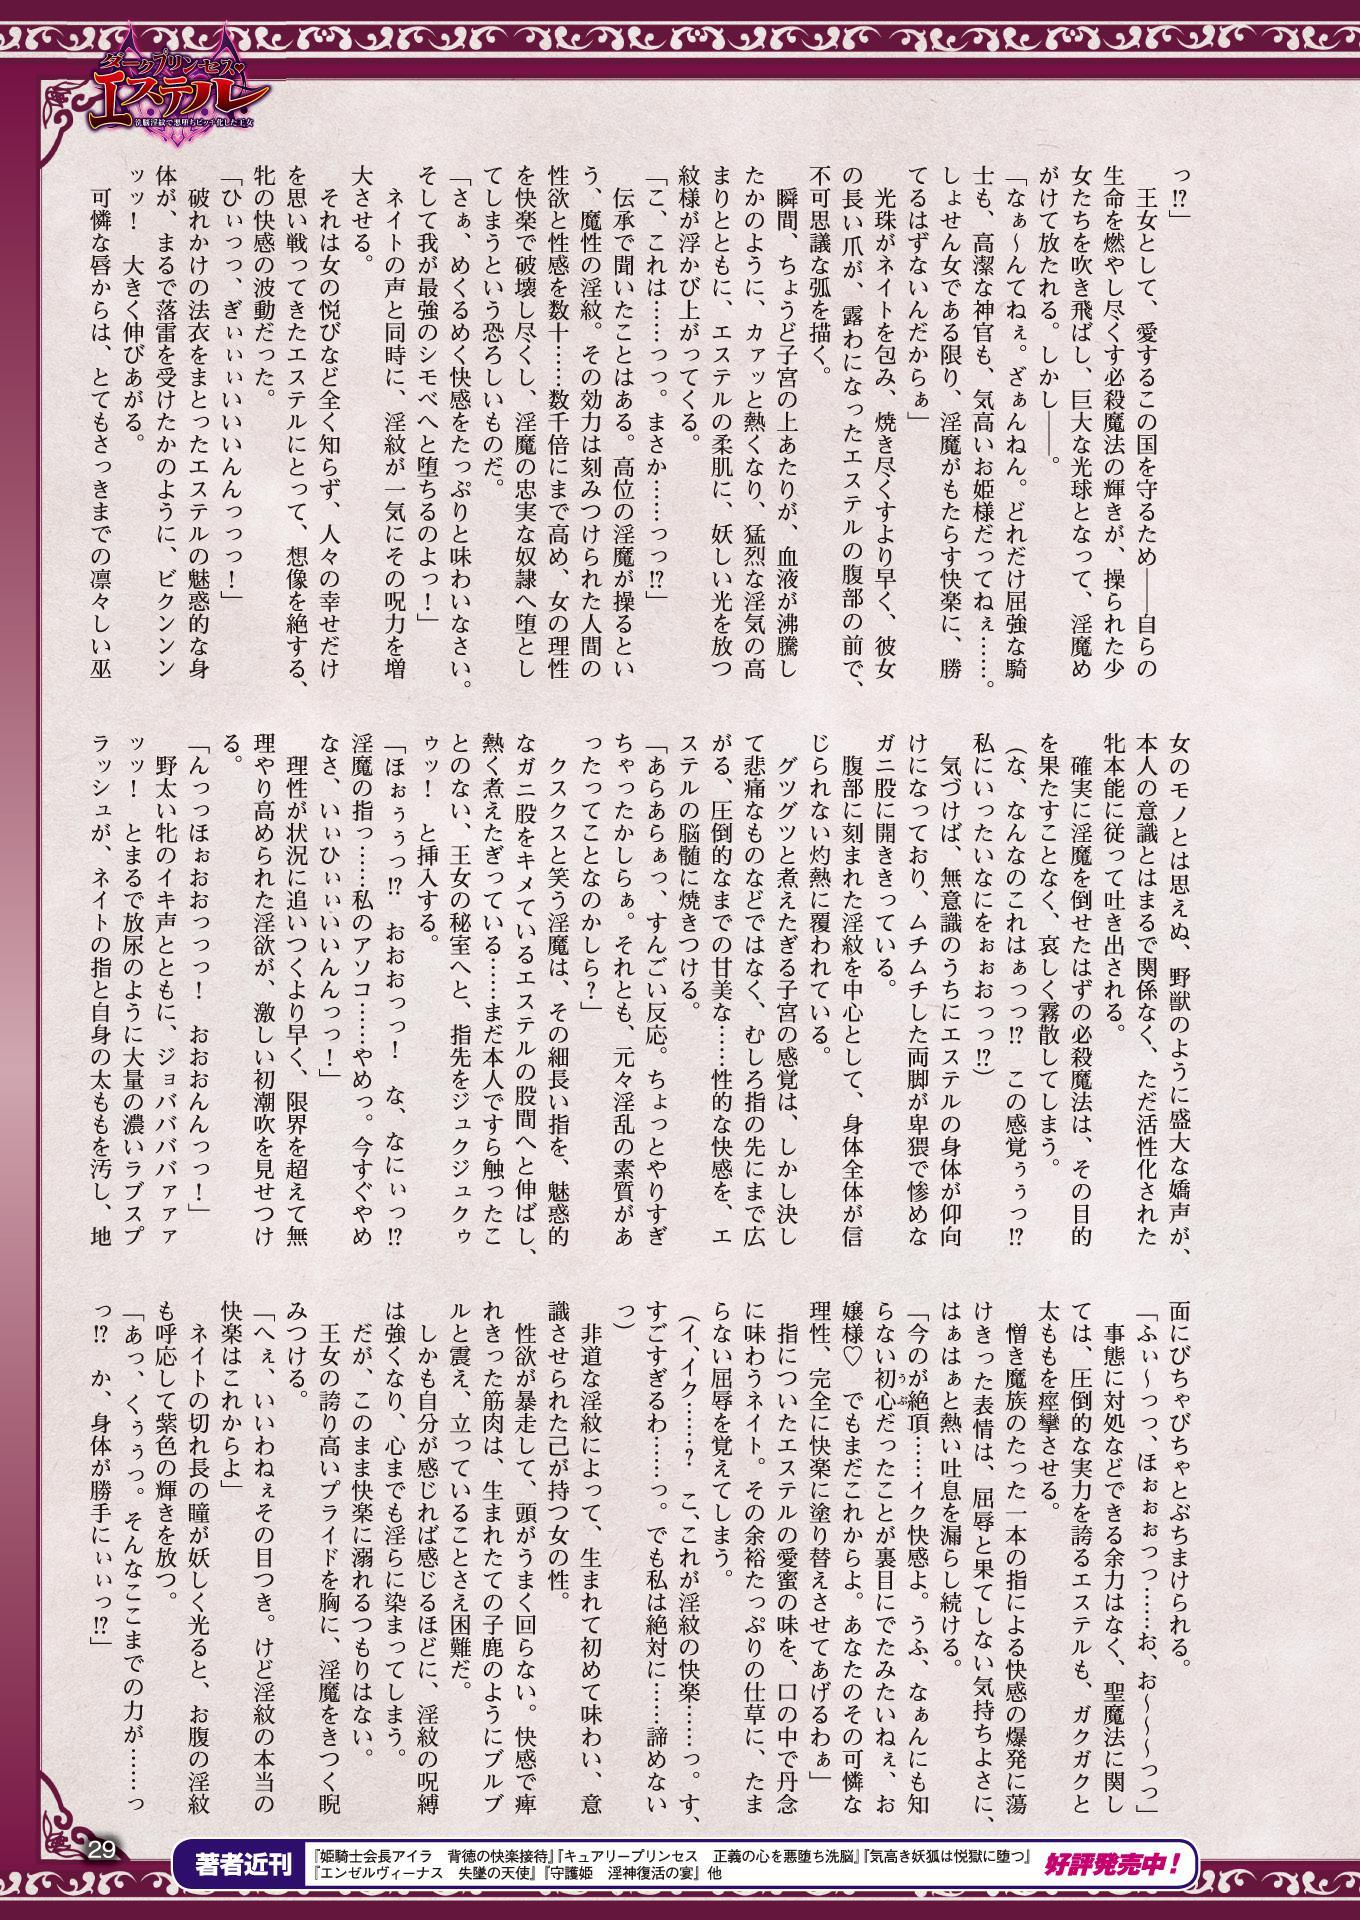 ダークプリンセス♥
エステル
洗脳淫紋で悪堕ちビッチ化した王女
っ⁉」
　王女として、愛するこの国を守るため――自らの
生命を燃やし尽くす必殺魔法の輝きが、操られた少
女たちを吹き飛ばし、巨大な光球となって、淫魔め
がけて放たれる。しかし――。
「なぁ～んてねぇ。ざぁんねん。どれだけ屈強な騎
士も、高潔な神官も、気高いお姫様だってねぇ……。
しょせん女である限り、淫魔がもたらす快楽に、勝
てるはずないんだからぁ」
　光珠がネイトを包み、焼き尽くすより早く、彼女
の長い爪が、露わになったエステルの腹部の前で、
不可思議な弧を描く。
　瞬間、ちょうど子宮の上あたりが、血液が沸騰し
たかのように、カァッと熱くなり、猛烈な淫気の高
まりとともに、エステルの柔肌に、妖しい光を放つ
紋様が浮かび上がってくる。
「こ、これは……っっ。まさか……っっ⁉」
　伝承で聞いたことはある。高位の淫魔が操るとい
う、魔性の淫紋。その効力は刻みつけられた人間の
性欲と性感を数十……数千倍にまで高め、女の理性
を快楽で破壊し尽くし、淫魔の忠実な奴隷へ堕とし
てしまうという恐ろしいものだ。
「さぁ、めくるめく快感をたっぷりと味わいなさい。
そして我が最強のシモベへと堕ちるのよっ！」
　ネイトの声と同時に、淫紋が一気にその呪力を増
大させる。
　それは女の悦びなど全く知らず、人々の幸せだけ
を思い戦ってきたエステルにとって、想像を絶する、
牝の快感の波動だった。
「ひぃっっ、ぎぃぃぃいいいんんっっっ！」
　破れかけの法衣をまとったエステルの魅惑的な身
体が、まるで落雷を受けたかのように、ビクンンン
ッッ！　大きく伸びあがる。
　可憐な唇からは、とてもさっきまでの凛々しい巫
女のモノとは思えぬ、野獣のように盛大な嬌声が、
本人の意識とはまるで関係なく、ただ活性化された
牝本能に従って吐き出される。
　確実に淫魔を倒せたはずの必殺魔法は、その目的
を果たすことなく、哀しく霧散してしまう。
（な、なんなのこれはぁっっ⁉　この感覚ぅぅっ⁉
私にいったいなにをぉぉおっっ⁉）
　気づけば、無意識のうちにエステルの身体が仰向
けになっており、ムチムチした両脚が卑猥で惨めな
ガニ股に開ききっている。
　腹部に刻まれた淫紋を中心として、身体全体が信
じられない灼熱に覆われている。
　グツグツと煮えたぎる子宮の感覚は、しかし決し
て悲痛なものなどではなく、むしろ指の先にまで広
がる、圧倒的なまでの甘美な……性的な快感を、エ
ステルの脳髄に焼きつける。
「あらあらぁっ、すんごい反応。ちょっとやりすぎ
ちゃったかしらぁ。それとも、元々淫乱の素質があ
ったってことなのかしら？」
　クスクスと笑う淫魔は、その細長い指を、魅惑的
なガニ股をキメているエステルの股間へと伸ばし、
熱く煮えたぎっている……まだ本人ですら触ったこ
とのない、王女の秘室へと、指先をジュクジュクゥ
ゥッ！　と挿入する。
「ほぉぅぅっ⁉　おおおっっ！　な、なにぃっ⁉
淫魔の指っ……私のアソコ……やめっ。今すぐやめ
なさ、いぃひぃぃいいんんっっ！」
　理性が状況に追いつくより早く、限界を超えて無
理やり高められた淫欲が、激しい初潮吹を見せつけ
る。
「んっっほぉおおっっっ！　おおおんんっっ！」
　野太い牝のイキ声とともに、ジョババババァァァ
ッッ！　とまるで放尿のように大量の濃いラブスプ
ラッシュが、ネイトの指と自身の太ももを汚し、地
面にびちゃびちゃとぶちまけられる。
「ふぃ～っっ、ほぉぉぉっっ……お、お～～～っっ」
　事態に対処などできる余力はなく、聖魔法に関し
ては、圧倒的な実力を誇るエステルも、ガクガクと
太ももを痙攣させる。
　憎き魔族のたった一本の指による快感の爆発に蕩
けきった表情は、屈辱と果てしない気持ちよさに、
はぁはぁと熱い吐息を漏らし続ける。
「今のが絶頂……イク快感よ。うふ、なぁんにも知
らない初心うぶだったことが裏目にでたみたいねぇ、お
嬢様♡　でもまだこれからよ。あなたのその可憐な
理性、完全に快楽に塗り替えさせてあげるわぁ」
　指についたエステルの愛蜜の味を、口の中で丹念
に味わうネイト。その余裕たっぷりの仕草に、たま
らない屈辱を覚えてしまう。
（イ、イク……？　こ、これが淫紋の快楽……っ。す、
すごすぎるわ……っ。でも私は絶対に……諦めない
っ）
　非道な淫紋によって、生まれて初めて味わい、意
識させられた己が持つ女の性。
　性欲が暴走して、頭がうまく回らない。快感で痺
れきった筋肉は、生まれたての子鹿のようにブルブ
ルと震え、立っていることさえ困難だ。
　しかも自分が感じれば感じるほどに、淫紋の呪縛
は強くなり、心までも淫らに染まってしまう。
　だが、このまま快楽に溺れるつもりはない。
　王女の誇り高いプライドを胸に、淫魔をきつく睨
みつける。
「へぇ、いいわねぇその目つき。けど淫紋の本当の
快楽はこれからよ」
　ネイトの切れ長の瞳が妖しく光ると、お腹の淫紋
も呼応して紫色の輝きを放つ。
「あっ、くぅぅっ。そんなここまでの力が……っ
っ⁉　か、身体が勝手にぃぃっ⁉」
29
著者近刊
『姫騎士会長アイラ　背徳の快楽接待』『キュアリープリンセス　正義の心を悪堕ち洗脳』『気高き妖狐は悦獄に堕つ』
『エンゼルヴィーナス　失墜の天使』『守護姫　淫神復活の宴』他
好評発売中！